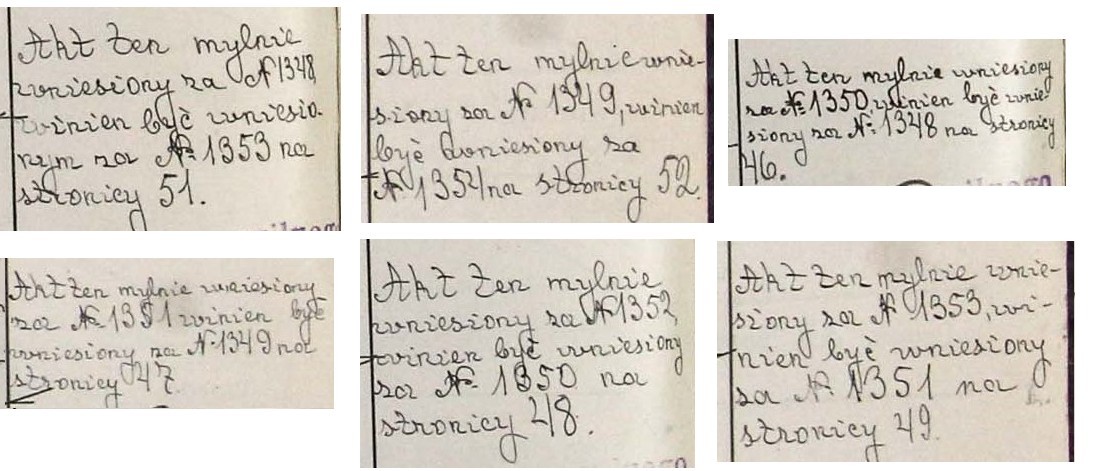 Akt ten mylnie
wniesiony za № 1348
winien być wniesio-
nym za № 1353 na
stronicy 51.
Akt ten mylnie wnie-
siony za № 1349, winien
być wniesiony za
№ 1354 na stronicy 52.
Akt ten mylnie wniesiony
za № 1350, winien być wnie-
siony za № 1348 na stronicy
46.
Akt ten mylnie wniesiony
za № 1351 winien być
wniesiony za № 1349 na
stronicy 47
Akt ten mylnie
wniesiony za № 1352,
winien być wniesiony
za № 1350 na
stronicy 48.
Akt ten mylnie wnie-
siony za № 1353, wi-
nien być wniesiony
za № 1351 na
stronicy 49.